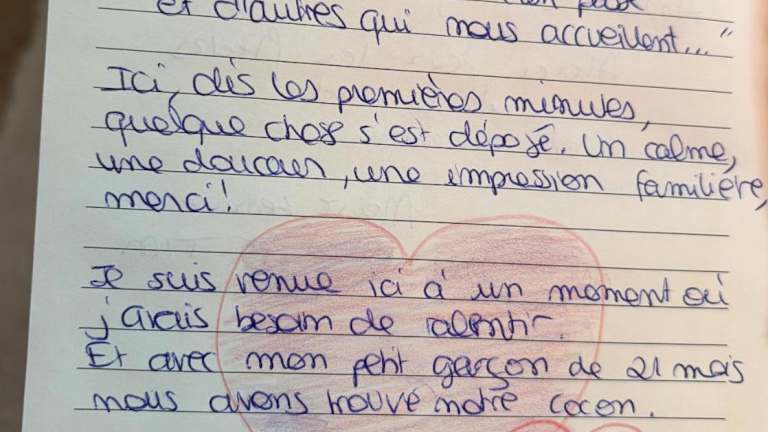 et d'autres qui nous accueillent..."
Ici, dès les premières minutes,
quelque chose s'est déposé. Un calme,
une douceur, une impression familière,
merci!
Je suis venue ici à un moment où
j'avais besoin de ralentir.
Et avec mon petit garçon de 21 mois
nous avons trouvé notre cocon.